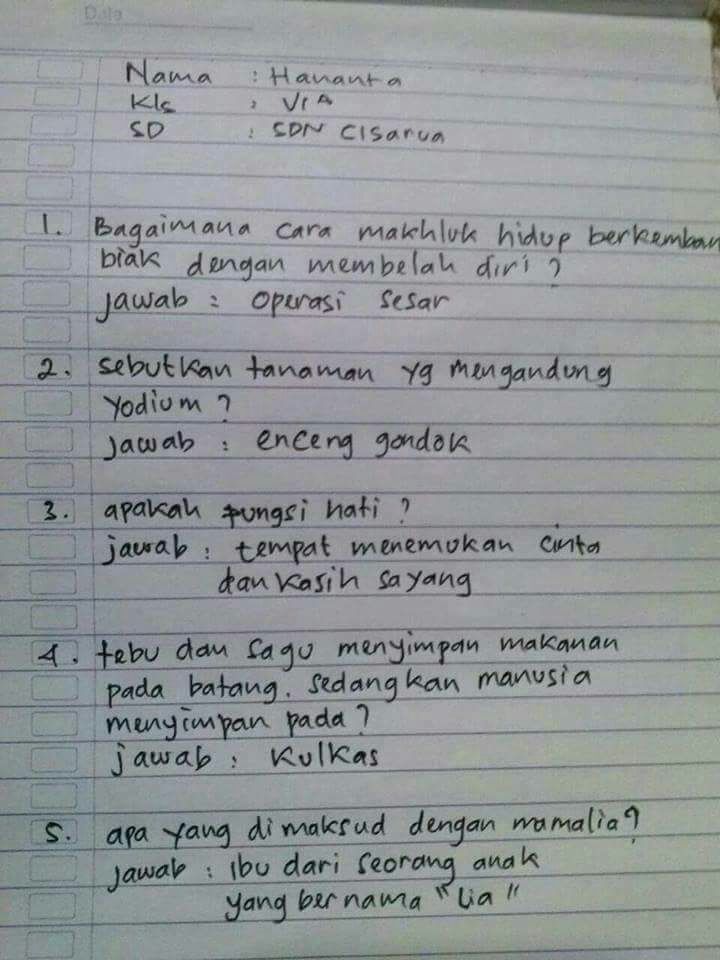 Date
Nama : Hananta
Kls : VIA
SD : SDN Cisarua
1. Bagaimana cara makhluk hidup berkemban
biak dengan membelah diri ?
jawab : operasi sesar
2. sebutkan tanaman yg mengandung
yodium ?
jawab : enceng gondok
3. apakah fungsi hati ?
jawab : tempat menemukan cinta
dan kasih sayang
4. tebu dan sagu menyimpan makanan
pada batang. sedangkan manusia
menyimpan pada ?
jawab : kulkas
5. apa yang dimaksud dengan mamalia ?
jawab : ibu dari seorang anak
yang bernama "Lia"